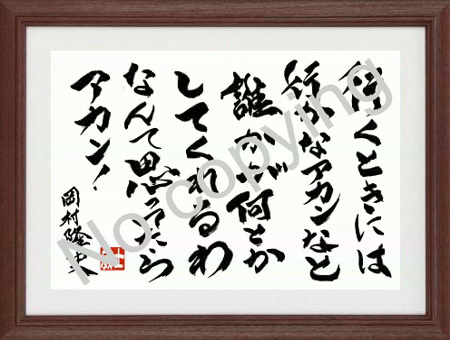 行くときには
行かなアカンなと
誰かが何とか
してくれるわ
なんて思うたら
アカン!
岡村隆史
No copying